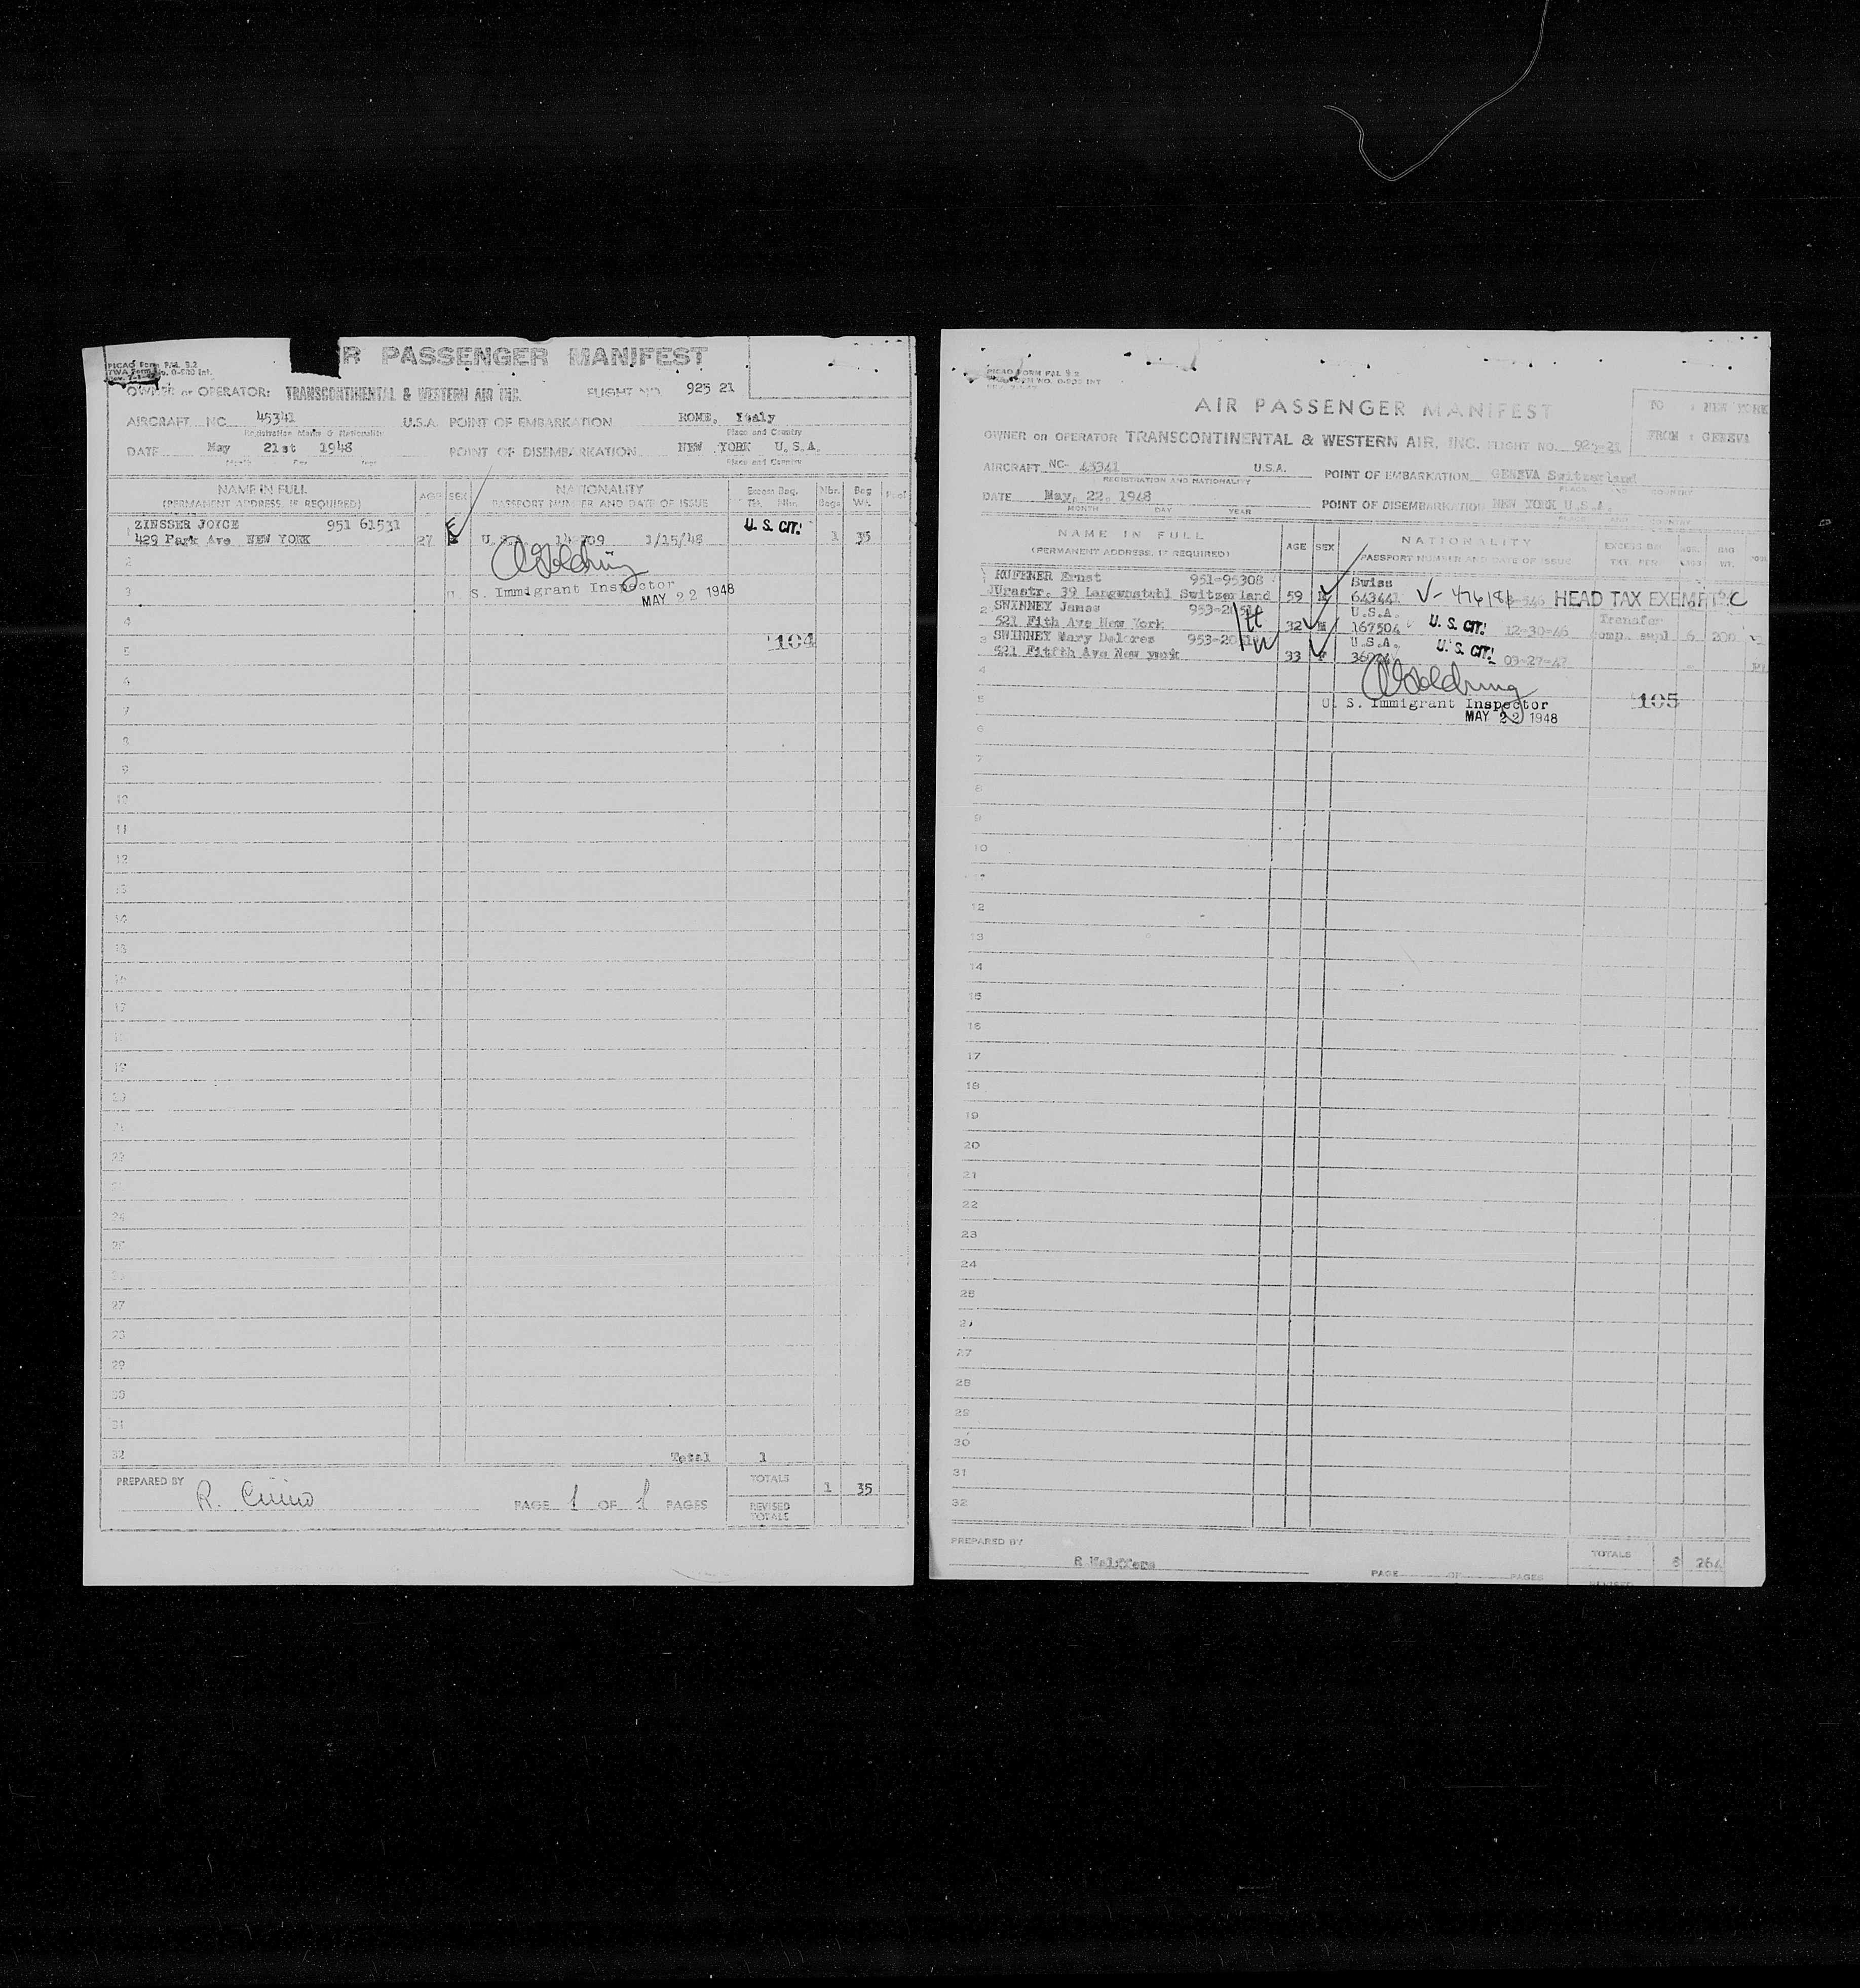 R PASSENGER MANIFEST
PICAO Form PAL 9.2
TWA Form No. 0-500 Int.
OWNER or OPERATOR: TRANSCONTINENTAL & WESTERN AIR INC. FLIGHT NO. 925 21
AIRCRAFT NC 45341 U.S.A. POINT OF EMBARKATION ROME, Italy
Registration Marks & Nationality Place and Country
DATE May 21st 1948 POINT OF DISEMBARKATION NEW YORK U.S.A.
Month Day Year Place and Country
NAME IN FULL AGE SEX NATIONALITY Excess Bag. Nbr. Bag
(PERMANENT ADDRESS, IF REQUIRED) PASSPORT NUMBER AND DATE OF ISSUE Tkt. Nbr. Bags Wt.
1 ZINSSER JOYCE 951 61531 U.S. CIT.
429 Park Ave NEW YORK 27 F U.S.A. 3/15/48 1 35
2
3 U. S. Immigrant Inspector
MAY 22 1948
4
104
5
6
7
8
9
10
11
12
13
14
15
16
17
18
19
20
21
22
24
25
27
28
29
30
31
32 Total 1
PREPARED BY TOTALS 1 35
PAGE 1 OF 1 PAGES REVISED
TOTALS
PICAO FORM PAL 9.2
FORM NO. 0-500 INT
AIR PASSENGER MANIFEST
TO : NEW YORK
OWNER OR OPERATOR TRANSCONTINENTAL & WESTERN AIR, INC. FLIGHT NO. 925-21
FROM : GENEVA
AIRCRAFT NC- 45341 U.S.A. POINT OF EMBARKATION GENEVA Switzerland
REGISTRATION AND NATIONALITY PLACE COUNTRY
DATE May, 22, 1948 POINT OF DISEMBARKATION NEW YORK U.S.A.
MONTH DAY YEAR
NAME IN FULL AGE SEX NATIONALITY EXCESS BAG. NBR. BAG
(PERMANENT ADDRESS, IF REQUIRED) PASSPORT NUMBER AND DATE OF ISSUE TKT. NBR. BAGS WT.
1 RUFENER Ernst 951-95308 Swiss
Jurastr. 39 Langenstahl Switzerland 59 M 643441 HEAD TAX EXEMPT C
2 SWINNEY James U.S.A. Transfer
521 Fith Ave New York 32 M 167504 U.S. CIT. 12-30-46 comp. supl 6 200
3 SWINNEY Mary Dolores U.S.A.
521 Fitfth Ave New york 33 F U.S. CIT. 03-27-47
4
5 U. S. Immigrant Inspector 105
MAY 22 1948
6
7
8
9
10
11
12
13
14
15
16
17
18
19
20
21
22
23
24
25
27
28
29
30
31
32
PREPARED BY
TOTALS 8 264
PAGE OF PAGES